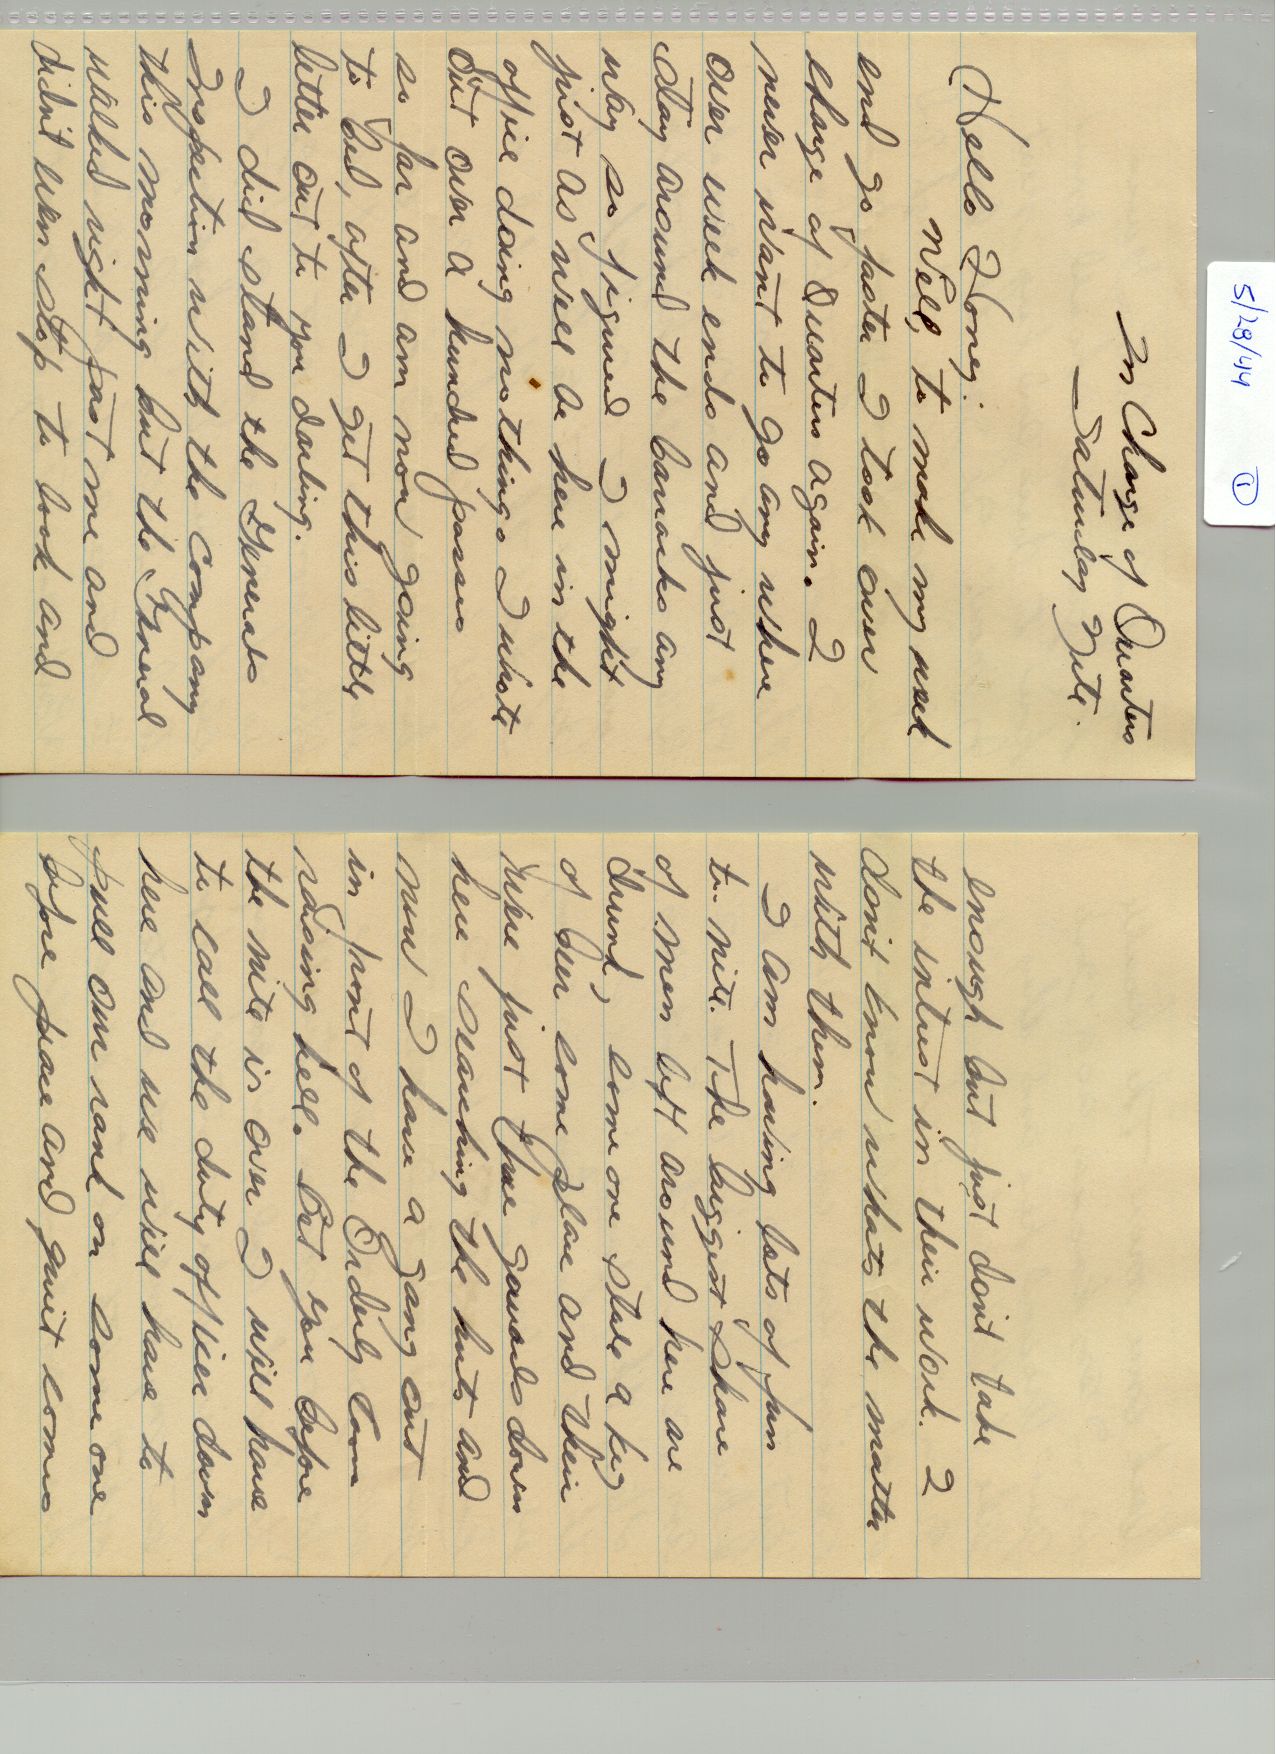 5/28/44 ①
In Charge of Quarters
Saturday Nite.
Hello Honey:
Well, to make my week
end go faster I took over
charge of Quarters again. I
never want to go any where
over week ends and just
stay around the barracks any
way so figured I might
just as well be here in the
office doing nothing. I wrote
out over a hundred passes
so far and am now going
to bed, after I get this little
letter out to you darling.
I did stand the Generals
Inspection with the Company
this morning but the General
walked right past me and
didn't even stop to look and
enough but just don't take
the intrest in their work. I
don't know whats the matter
with them.
I am having lots of fun
to-nite. The biggest share
of men left around here are
drunk, some one stole a keg
of beer some place and their
were just three guards down
here searching the huts and
now I have a gang out
in front of the Orderly room
raising hell. Bet you before
the nite is over I will have
to call the duty officer down
here and we will have to
pull our rank on some one
before peace and quiet comes